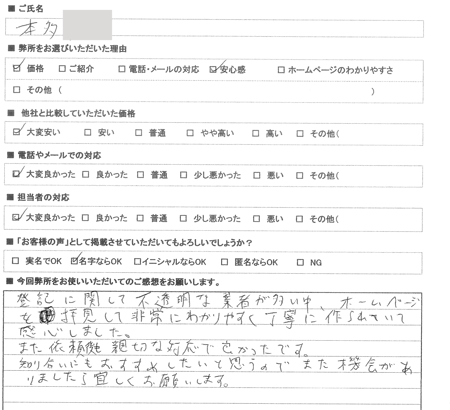 ■ ご氏名
本多
■ 弊所をお選びいただいた理由
☑ 価格 □ ご紹介 □ 電話・メールの対応 ☑ 安心感 □ ホームページのわかりやすさ
□ その他 ( )
■ 他社と比較していただいた価格
☑ 大変安い □ 安い □ 普通 □ やや高い □ 高い □ その他(
■ 電話やメールでの対応
☑ 大変良かった □ 良かった □ 普通 □ 少し悪かった □ 悪い □ その他(
■ 担当者の対応
☑ 大変良かった □ 良かった □ 普通 □ 少し悪かった □ 悪い □ その他(
■「お客様の声」として掲載させていただいてもよろしいでしょうか?
□ 実名でOK ☑名字ならOK □イニシャルならOK □ 匿名ならOK □ NG
■ 今回弊所をお使いいただいてのご感想をお願いします。
登記に関して不透明な業者が多い中、ホームページ
を拝見して非常にわかりやすく丁寧に作られていて
感心しました。
また依頼後親切な対応で良かったです。
知り合いにもおすすめしたいと思うのでまた機会があ
りましたら宜しくお願いします。